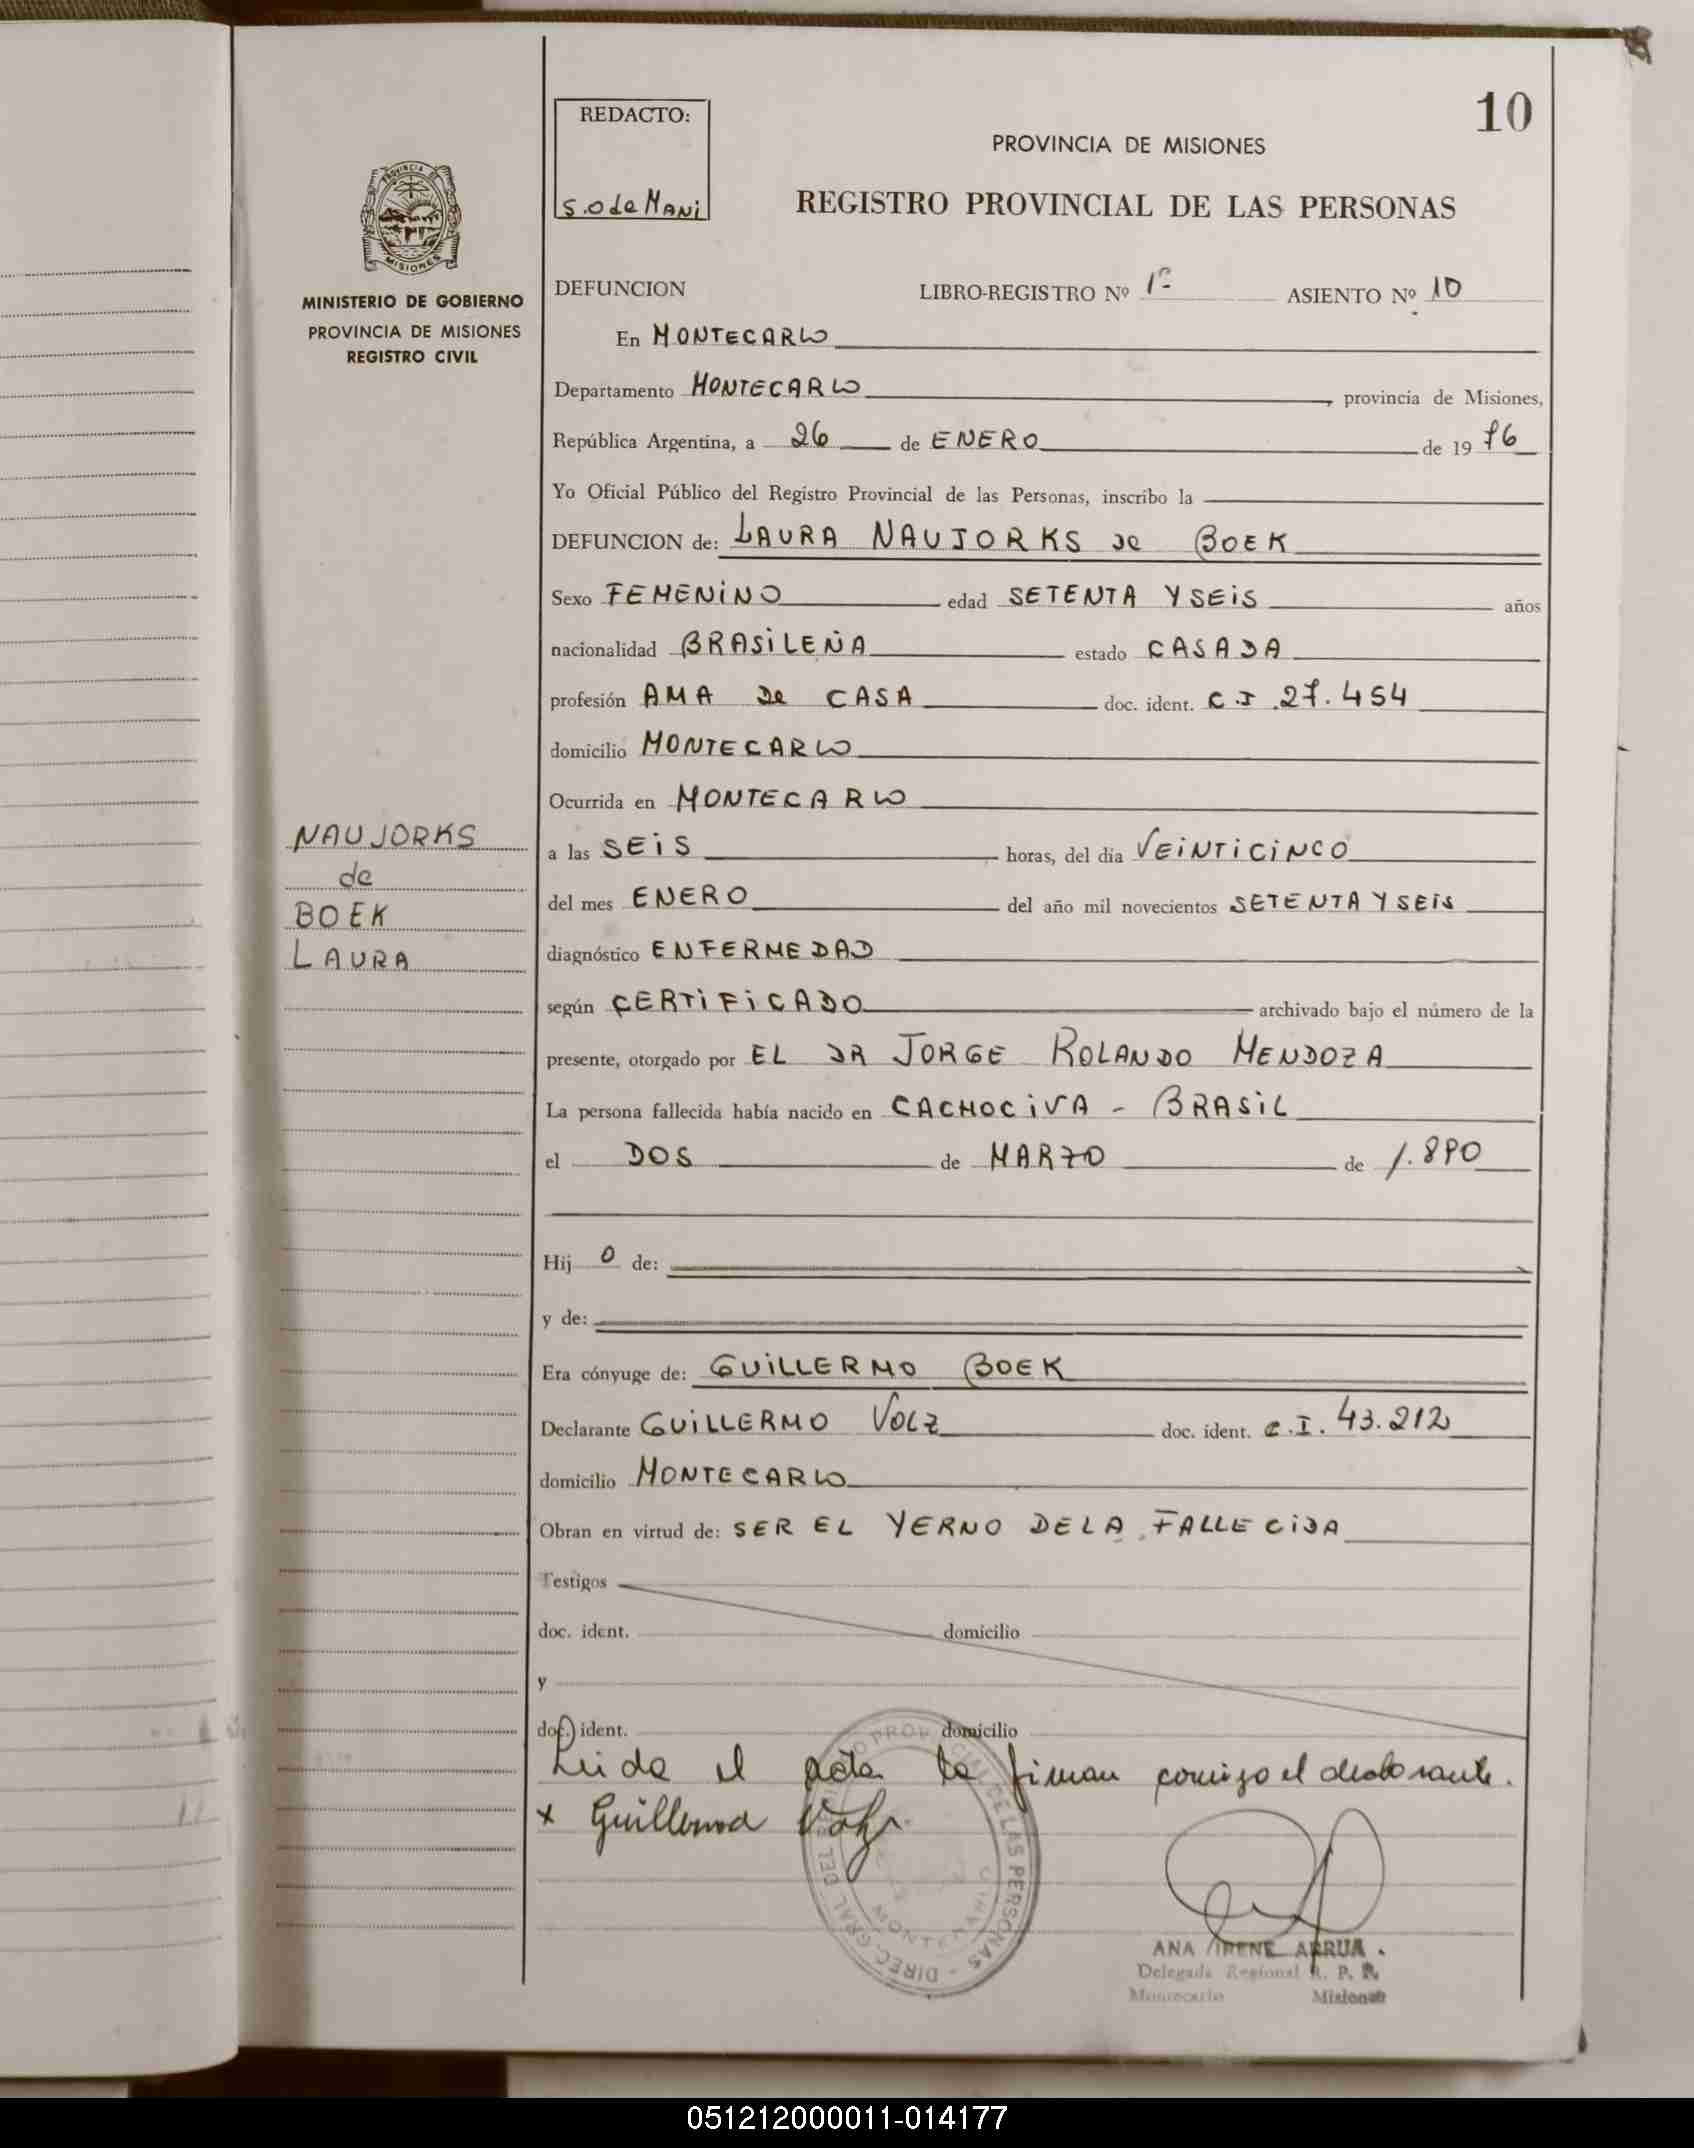 10
REDACTO:
S.O de MANI
PROVINCIA DE MISIONES
REGISTRO PROVINCIAL DE LAS PERSONAS
PROVINCIA DE
MISIONES
MINISTERIO DE GOBIERNO
PROVINCIA DE MISIONES
REGISTRO CIVIL
DEFUNCION LIBRO-REGISTRO Nº 1º ASIENTO Nº 10
En MONTECARLO
Departamento MONTECARLO, provincia de Misiones,
República Argentina, a 26 de ENERO de 19 76
Yo Oficial Público del Registro Provincial de las Personas, inscribo la
DEFUNCION de: LAURA NAUJORKS de BOEK
Sexo FEMENINO edad SETENTA Y SEIS años
nacionalidad BRASILEÑA estado CASADA
profesión AMA De CASA doc. ident. C.I 27.454
domicilio MONTECARLO
Ocurrida en MONTECARLO
a las SEIS horas, del día VEINTICINCO
del mes ENERO del año mil novecientos SETENTA Y SEIS
diagnóstico ENFERMEDAD
según CERTIFICADO archivado bajo el número de la
presente, otorgado por EL DR JORGE ROLANDO MENDOZA
La persona fallecida había nacido en CACHOCIVA - BRASIL
el DOS de MARZO de 1.890
Hij o de:
y de:
Era cónyuge de: GUILLERMO BOEK
Declarante GUILLERMO VOLZ doc. ident. C.I. 43.212
domicilio MONTECARLO
Obran en virtud de: SER EL YERNO DE LA FALLECIDA
Testigos
doc. ident. domicilio
y
doc. ident. domicilio
Leida el acta la firman comigo el declarante.
x Guillermo Volz
NAUJORKS
de
BOEK
LAURA
DIREC. GRAL. DEL REGISTRO PROVINCIAL DE LAS PERSONAS
MONTECARLO
ANA IRENE ARRUA.
Delegada Regional R. P. P.
Montecarlo Misiones
051212000011-014177